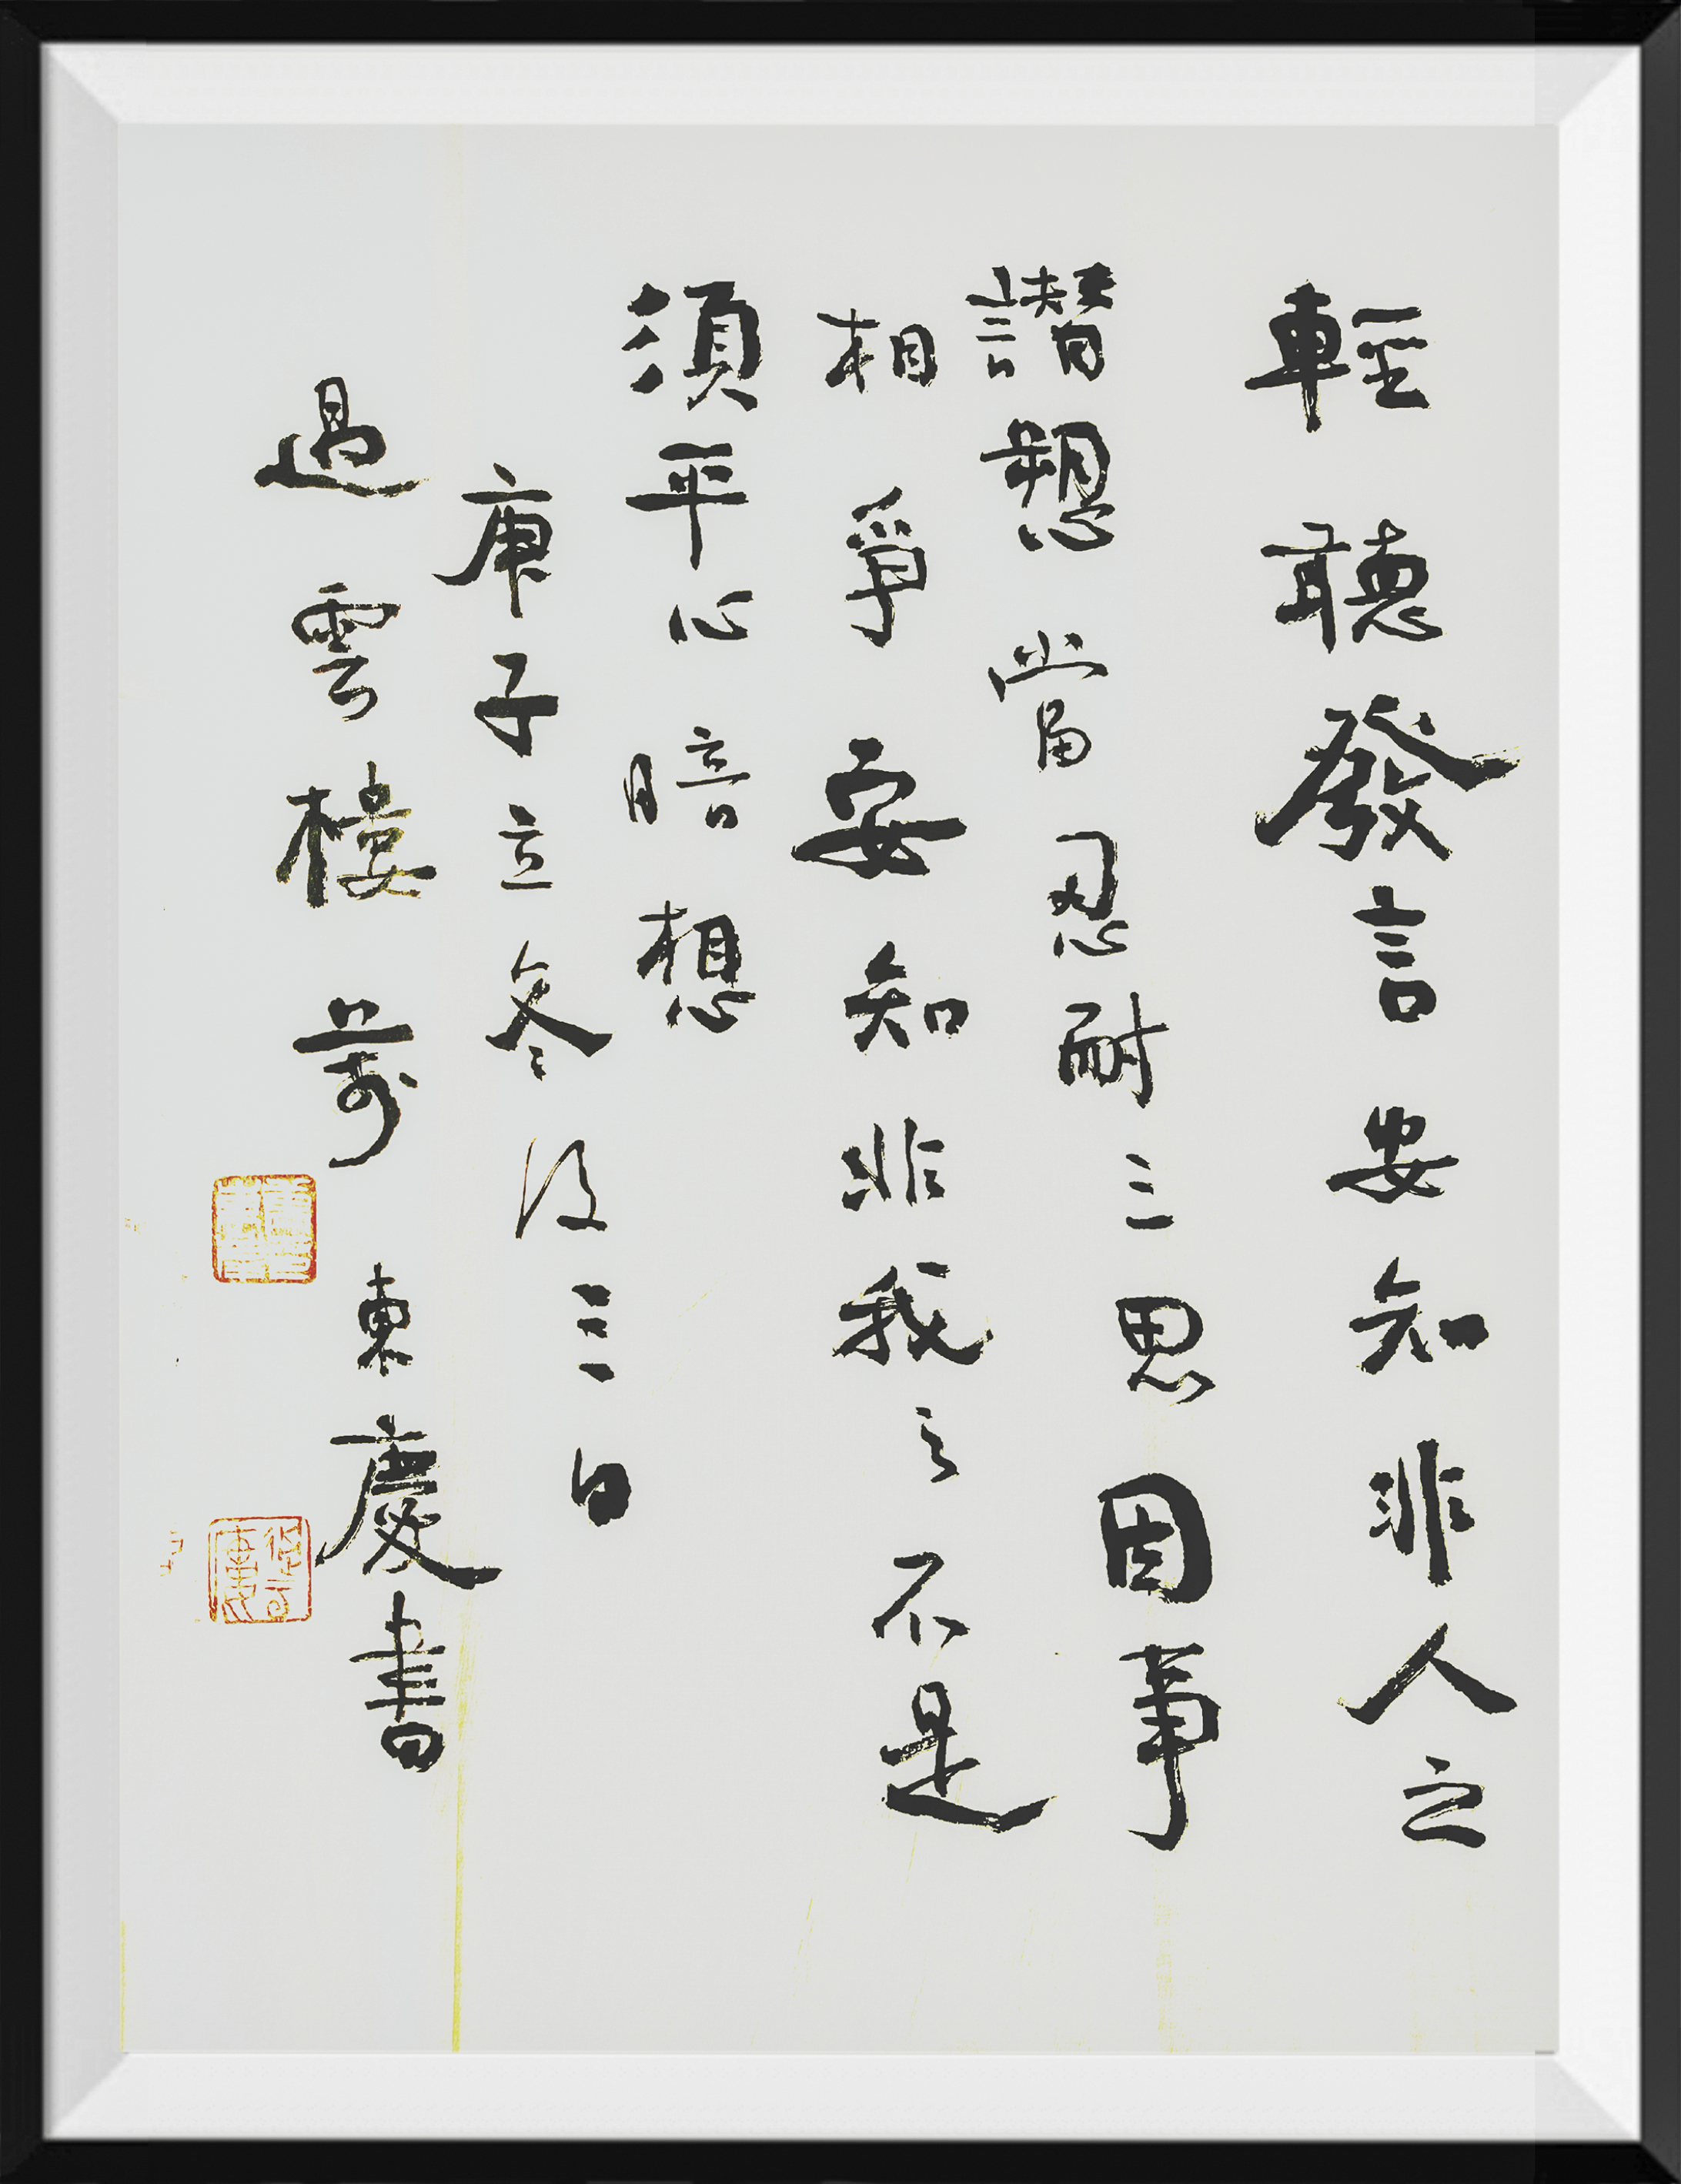 輕聽發言安知非人之
譖愬當忍耐三思因事
相爭安知非我之不是
須平心暗想
庚子立冬後三日
過雲樓萼東慶書